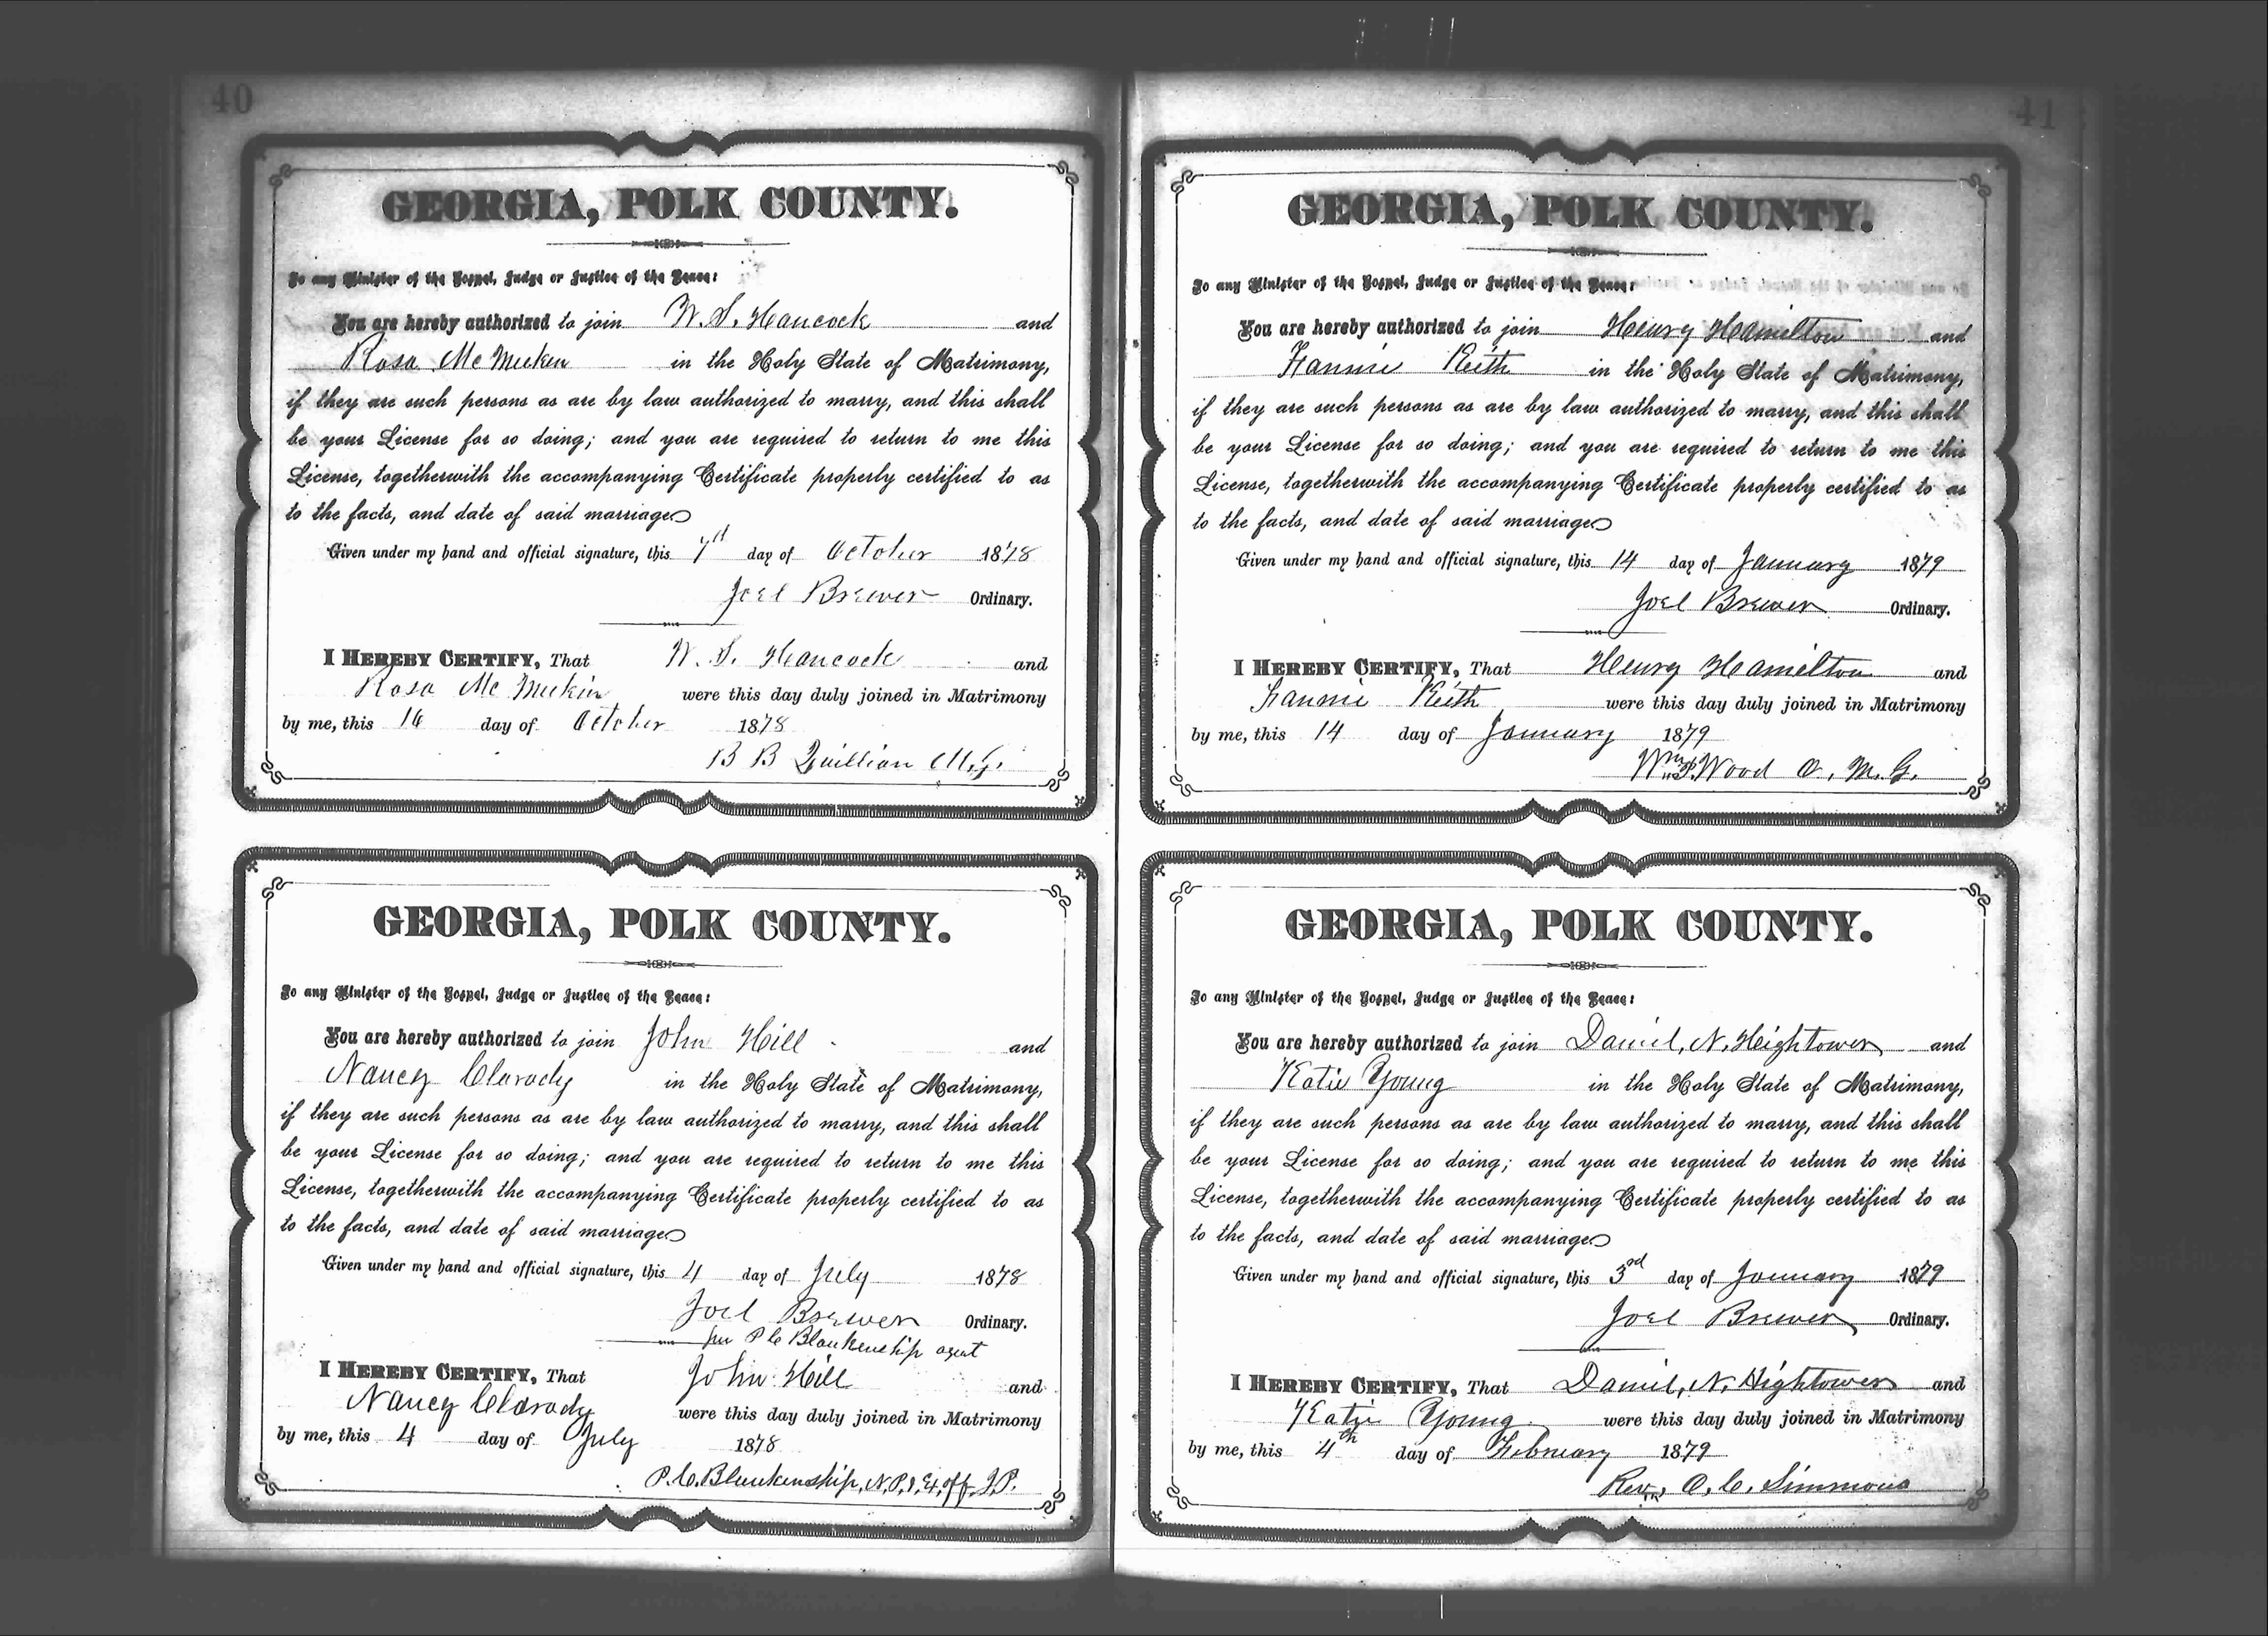 40
GEORGIA, POLK COUNTY.
To any Minister of the Gospel, Judge or Justice of the Peace:
You are hereby authorized to join W. S. Hancock and
Rosa McMeekin in the Holy State of Matrimony,
if they are such persons as are by law authorized to marry, and this shall
be your License for so doing; and you are required to return to me this
License, togetherwith the accompanying Certificate properly certified to as
to the facts, and date of said marriage
Given under my hand and official signature, this 7th day of October 1878
Joel Brewer Ordinary.
I HEREBY CERTIFY, That W. S. Hancock and
Rosa McMeekin were this day duly joined in Matrimony
by me, this 16 day of October 1878
B B Quillian M.G.
GEORGIA, POLK COUNTY.
To any Minister of the Gospel, Judge or Justice of the Peace:
You are hereby authorized to join John Hill and
Nancy Clarady in the Holy State of Matrimony,
if they are such persons as are by law authorized to marry, and this shall
be your License for so doing; and you are required to return to me this
License, togetherwith the accompanying Certificate properly certified to as
to the facts, and date of said marriage
Given under my hand and official signature, this 4 day of July 1878
Joel Brewer Ordinary.
per P C Blankenship agent
I HEREBY CERTIFY, That John Hill and
Nancy Clarady were this day duly joined in Matrimony
by me, this 4 day of July 1878
P. C. Blankenship, N.P. & Ex. off. J.P.
41
GEORGIA, POLK COUNTY.
To any Minister of the Gospel, Judge or Justice of the Peace:
You are hereby authorized to join Henry Hamilton and
Fannie Keith in the Holy State of Matrimony,
if they are such persons as are by law authorized to marry, and this shall
be your License for so doing; and you are required to return to me this
License, togetherwith the accompanying Certificate properly certified to as
to the facts, and date of said marriage
Given under my hand and official signature, this 14 day of January 1879
Joel Brewer Ordinary.
I HEREBY CERTIFY, That Henry Hamilton and
Fannie Keith were this day duly joined in Matrimony
by me, this 14 day of January 1879
Wood O. M. G.
GEORGIA, POLK COUNTY.
To any Minister of the Gospel, Judge or Justice of the Peace:
You are hereby authorized to join Daniel, N. Heightower and
Katie Young in the Holy State of Matrimony,
if they are such persons as are by law authorized to marry, and this shall
be your License for so doing; and you are required to return to me this
License, togetherwith the accompanying Certificate properly certified to as
to the facts, and date of said marriage
Given under my hand and official signature, this 3rd day of January 1879
Joel Brewer Ordinary.
I HEREBY CERTIFY, That Daniel, N. Hightower and
Katie Young were this day duly joined in Matrimony
by me, this 4th day of February 1879
Rev. O. C. Simmons